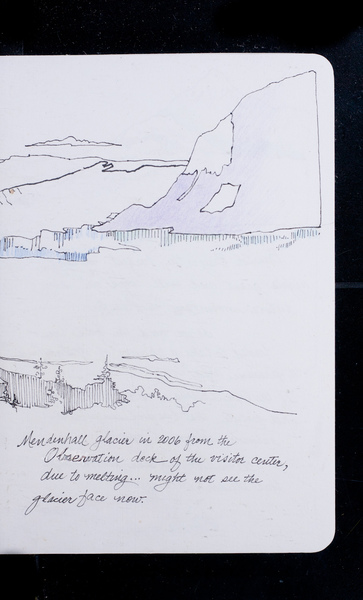 Mendenhall glacier in 2006 from the
Observation deck of the visitor center,
due to melting... might not see the
glacier face now.